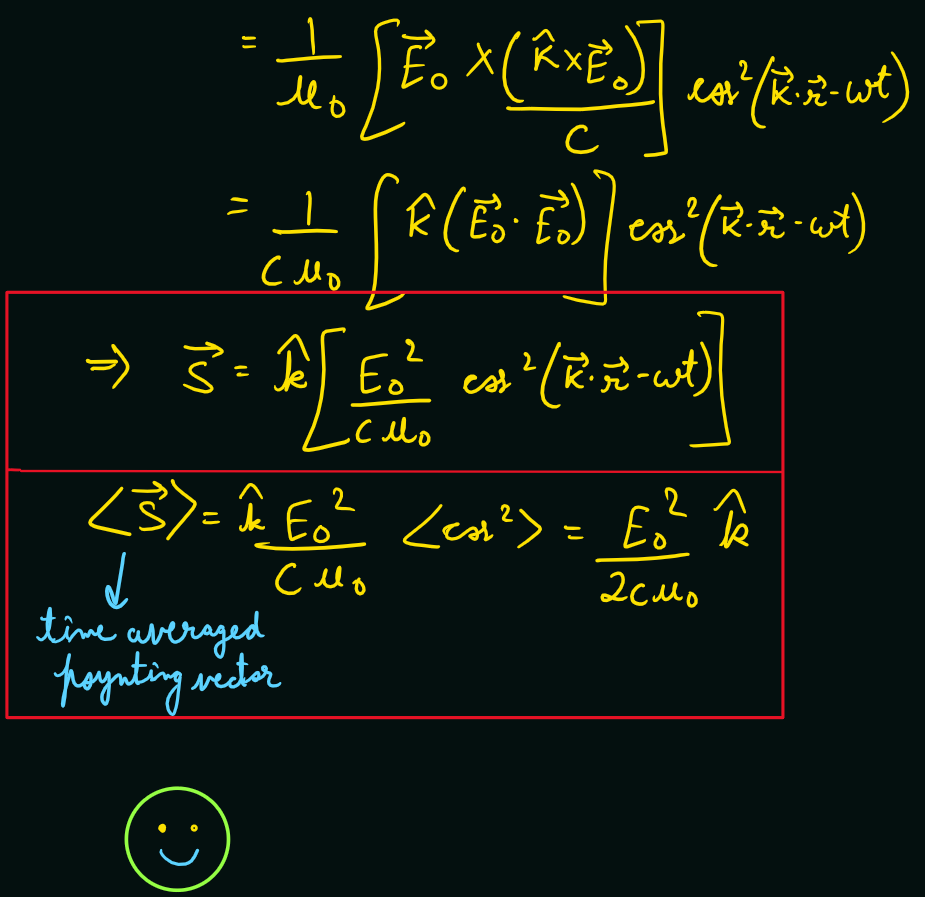 = 1/μ₀ [E⃗₀ × (k̂×E⃗₀)/C] cos²(k⃗·r⃗-ωt)
= 1/(cμ₀) [k̂(E⃗₀·E⃗₀)] cos²(k⃗·r⃗-ωt)
⇒ S⃗ = k̂[E₀²/(cμ₀) cos²(k⃗·r⃗-ωt)]
<S⃗> = k̂ E₀²/(cμ₀) <cos²> = E₀²/(2cμ₀) k̂
time averaged
poynting vector